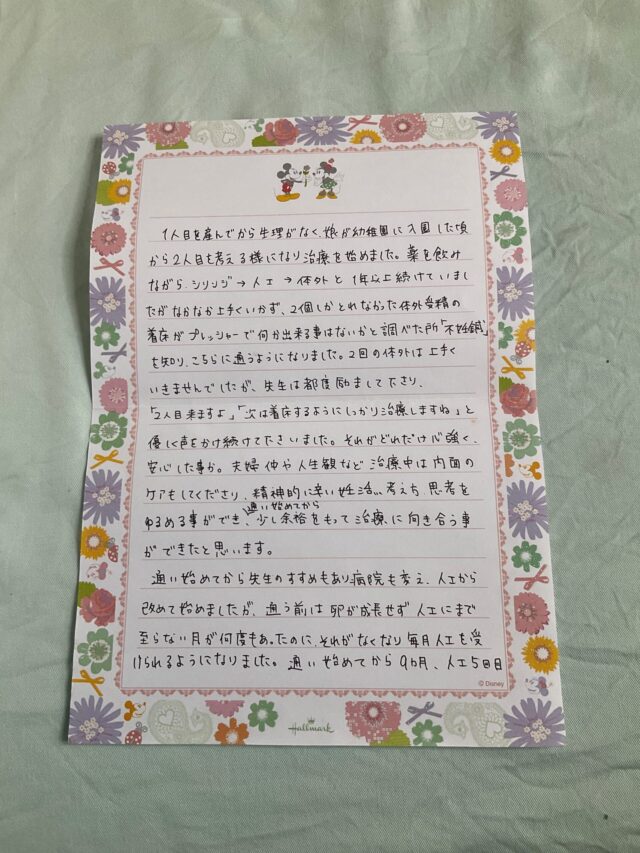 1人目を産んでから生理がなく、娘が幼稚園に入園した頃
から2人目も考える様になり治療を始めました。薬を飲み
ながら、シリンジ→人工→体外と1年以上続けていまし
たがなかなか上手くいかず、2個しかとれなかった体外受精の
着床がプレッシャーで何か出来る事はないかと調べた所「不妊鍼」
を知り、こちらに通うようになりました。2回の体外は上手く
いきませんでしたが、先生は都度励まして下さり、
「2人目来ますよ」「次は着床するようにしっかり治療しますね」と
優しく声をかけ続けて下さいました。それがどれだけ心強く、
安心した事か。夫婦仲や人生観など治療中は内面の
ケアもしてくださり、精神的に辛い妊活…考え方 思考を
通い始めてから
ゆるめる事ができ、少し余裕をもって治療に向き合う事
ができたと思います。
通い始めてから先生のすすめもあり病院も考え、人工から
改めて始めましたが、通う前は卵が成長せず人工にまで
至らない月が何度もあったのに、それがなくなり毎月人工を受
けられるようになりました。通い始めてから9ヵ月、人工5回目
© Disney
Hallmark